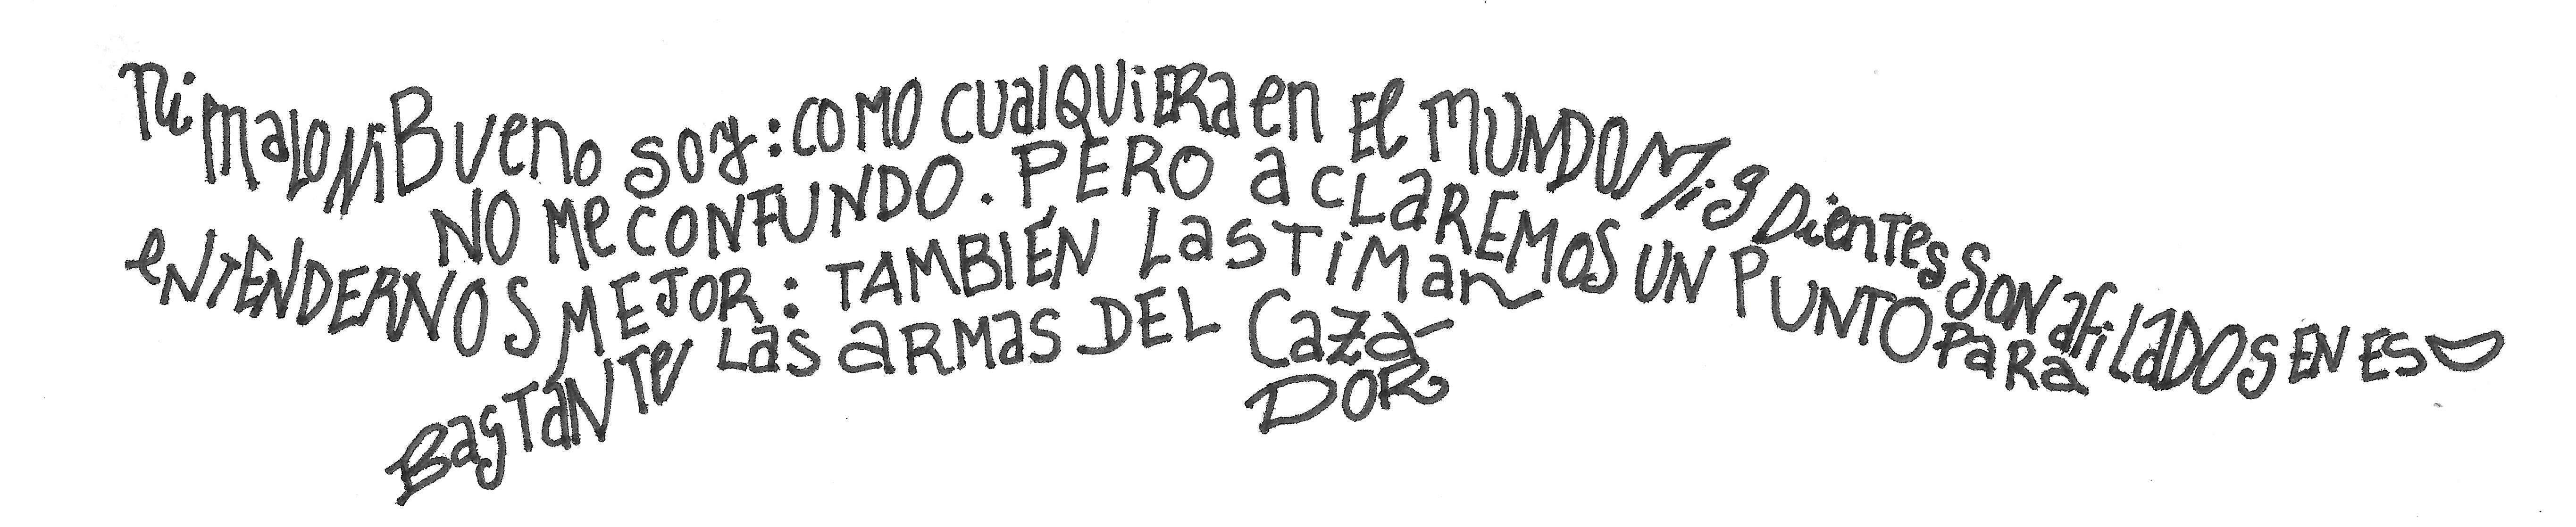 Ni malo Ni Bueno soy: COMO CUalQUiERa en El MUNDO Mis Dientes SON afiLaDOs EN ESO
NO Me CONFUNDO. PERO aCLaREMOS UN PUNTO PaRa
eNTENDERNOS MEJOR: TAMBIÉN LasTiMan
BasTaNTe Las aRMas DEL Caza-
DOR